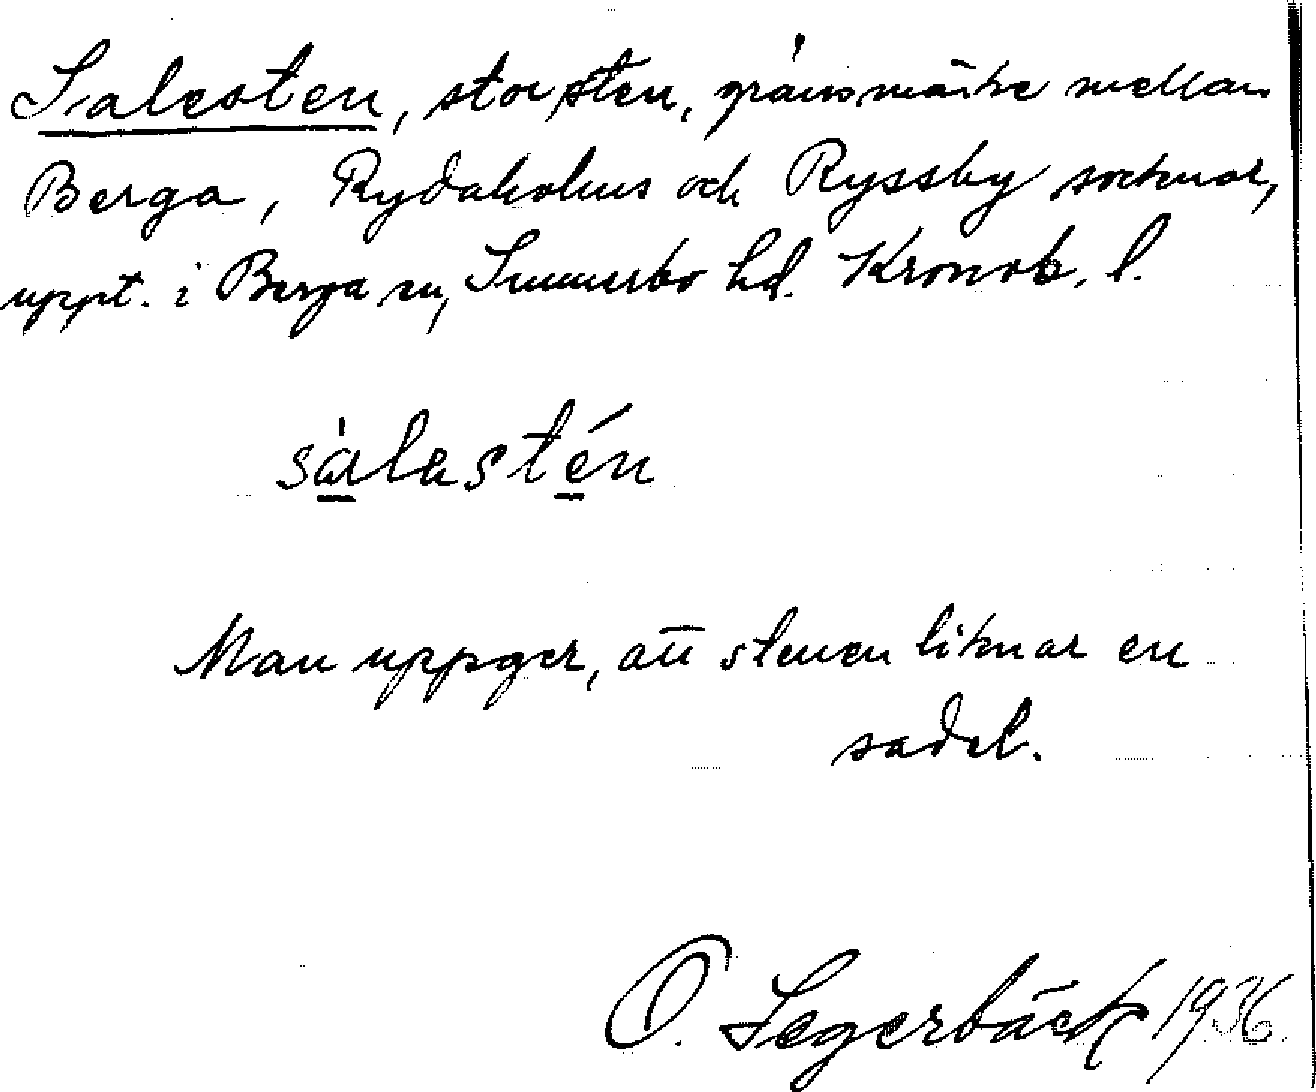 Salesten, stor sten, gränsmärke mellan
Berga, Rydaholms och Ryssby socknar,
uppt. i Berga sn, Sunnerbo hd. Kronob. l.
sàlastén
Man uppger, att stenen liknar en
sadel.
O. Segerbäck 1936.